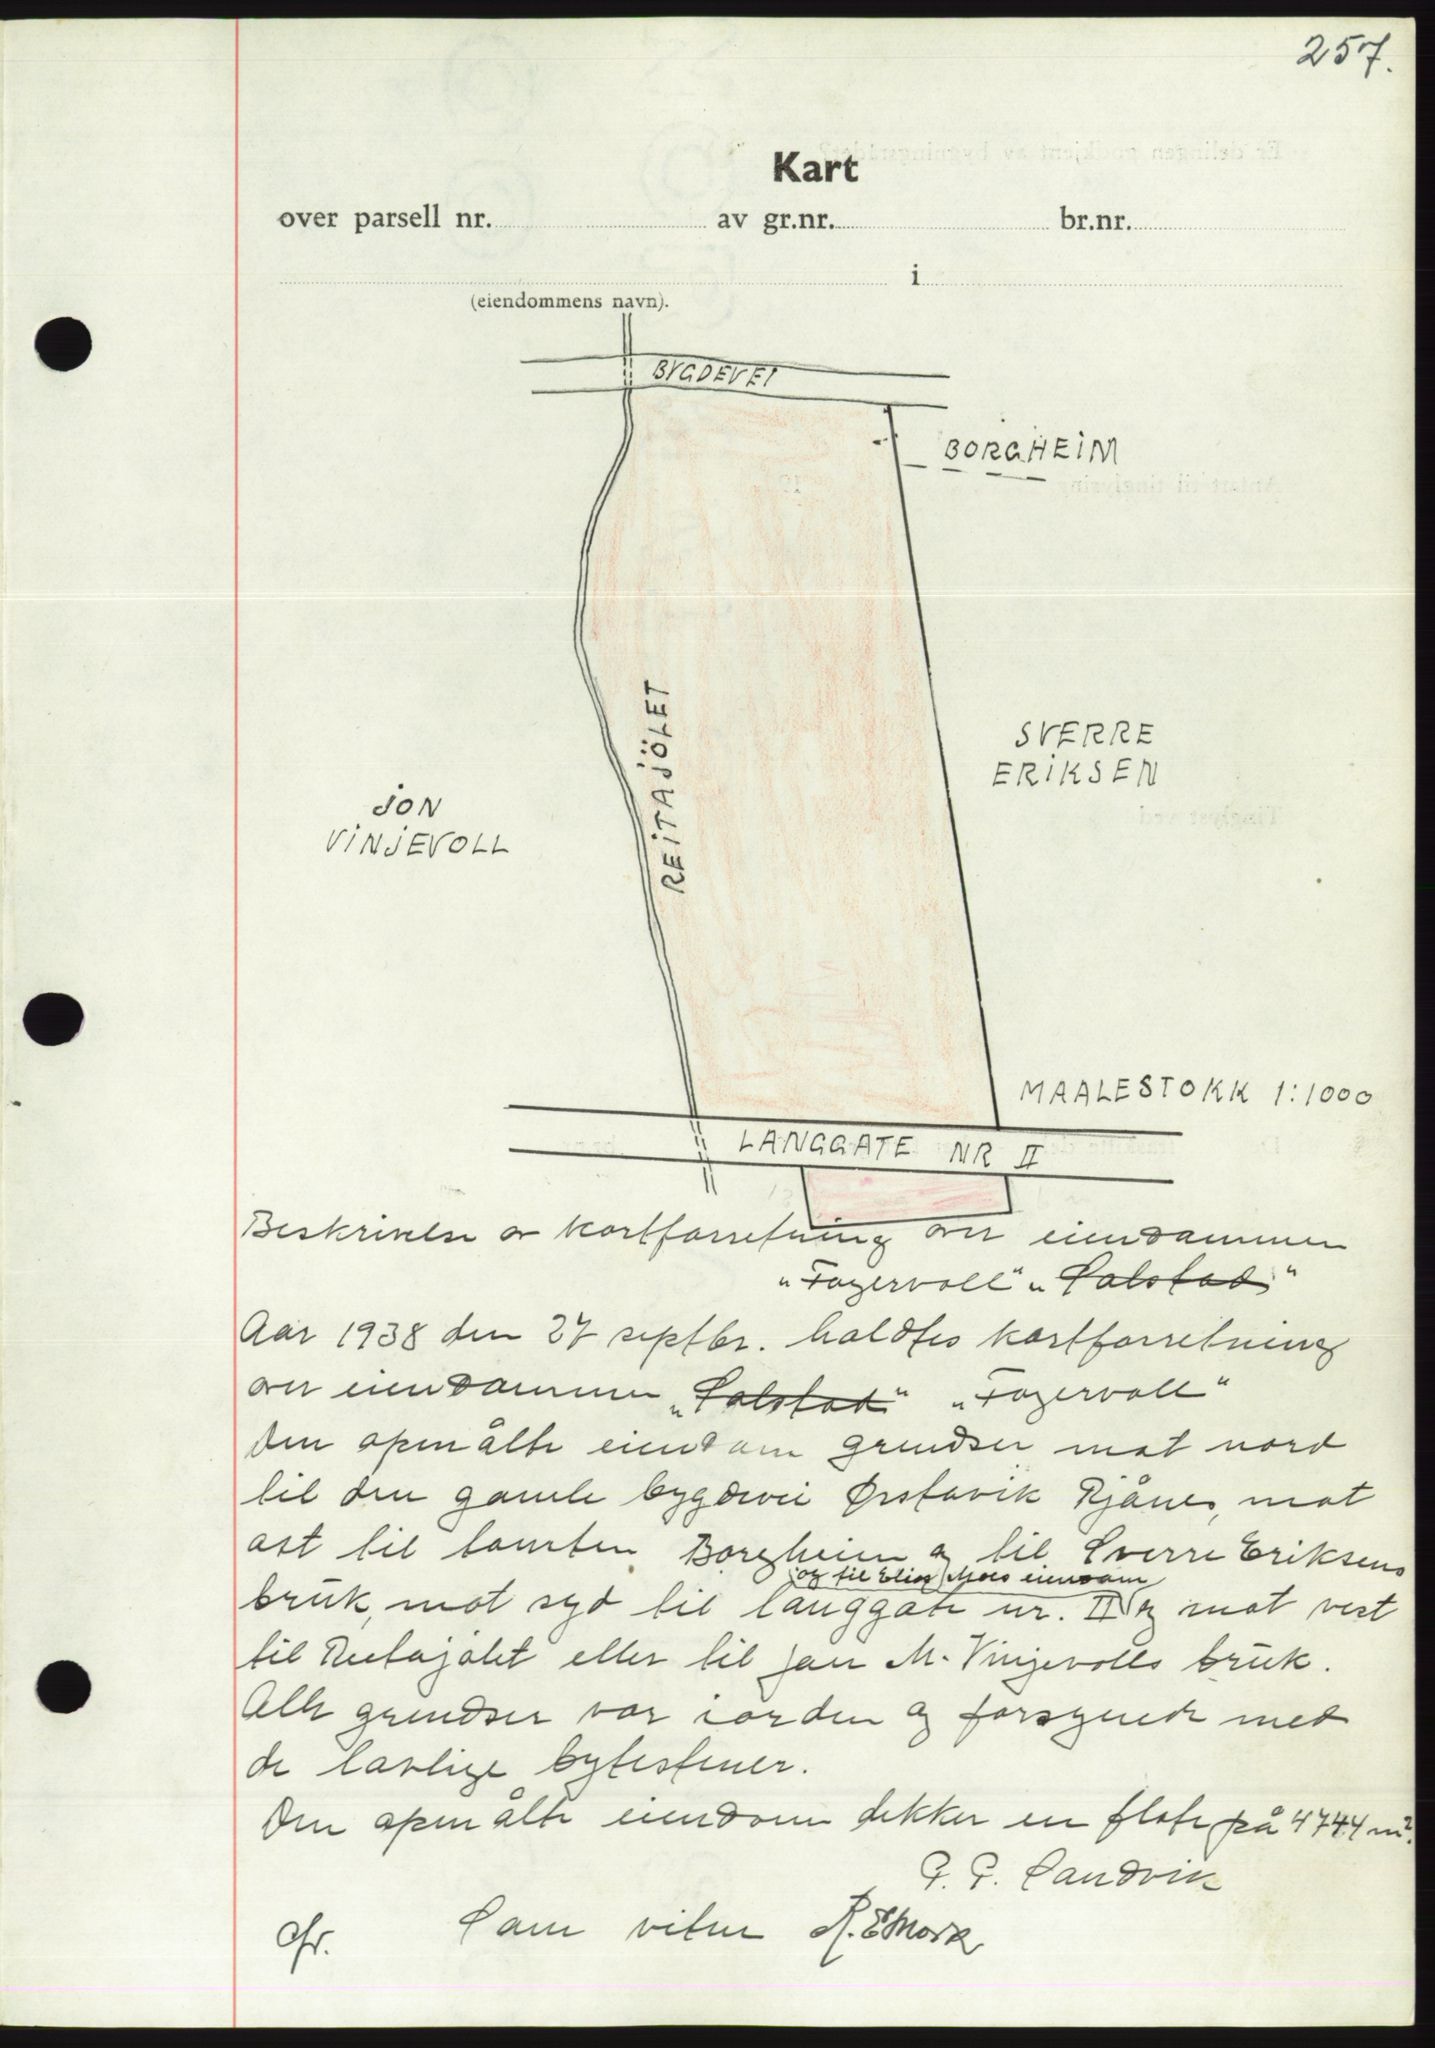 257.
Kart
over parsell nr. av gr.nr. br.nr.
i
(eiendommens navn).
BYGDEVEI
BORGHEIM
REITAJÖLET
SVERRE
ERIKSEN
JON
VINJEVOLL
MAALESTOKK 1:1000
LANGGATE NR II
Beskrivelse av kartforretning over eiendommen
"Fagervoll" "Solstad"
Aar 1938 den 27 septbr. holdtes kartforretning
over eiendommen "Solstad" "Fagervoll"
Den opmålte eiendom grendser mot nord
til den gamle bygdevei Ørstavik Rjånes, mot
ost til tomten Borgheim og til Sverre Eriksens
og til Elias Moes eiendom
bruk, mot syd til langgate nr. II og mot vest
til Reitajølet eller til Jon M. Vinjevolls bruk.
Alle grendser var iorden og forsynede med
de lovlige bytestener.
Den opmålte eiendom dekker en flate på 4744 m².
P. P. Sandvik
Som vitne R. E Mork
Cfr.